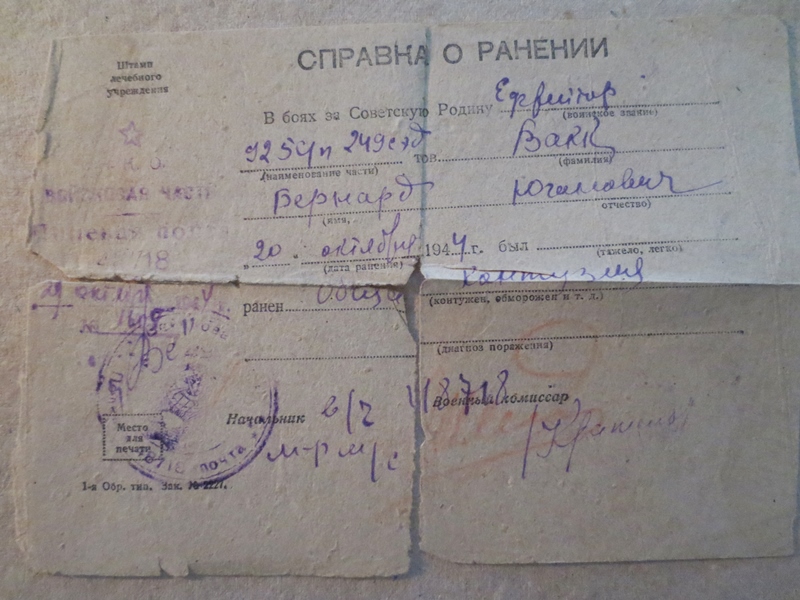 СПРАВКА О РАНЕНИИ
Штамп
лечебного
учреждения
В боях за Советскую Родину Ефрейтор
(воинское звание)
925 сп 249 сэд тов. Вакк
(наименование части) (фамилия)
Бернард Юганович
(имя, отчество)
"20" октября 1944 г. был
(дата ранения) (тяжело, легко)
ранен Общая контузия
(контужен, обморожен и т. д.)
(диагноз поражения)
ВОЙСКОВАЯ ЧАСТЬ
29 октяб
№
Начальник в/ч Военный комиссар
м-р м/с
Место
для
печати
почта
1-я Обр. тип. Зак. № 2227.